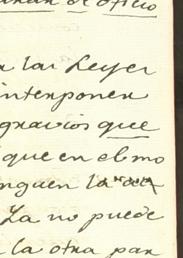 de oficio
a las Leyes
interponer
agravios que
que en el mo
nguen la
La no puede
la otra par